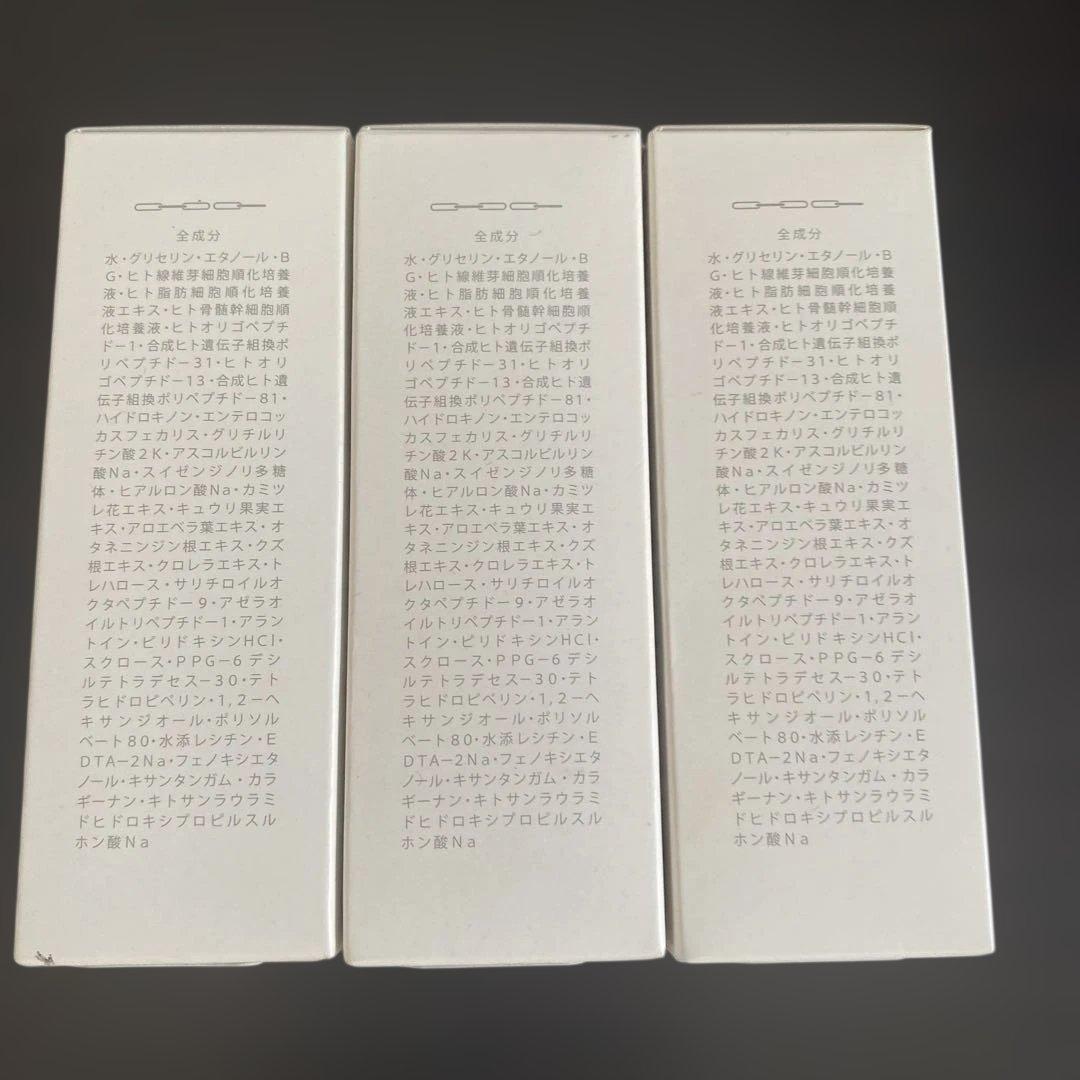 全成分
水・グリセリン・エタノール・B
G・ヒト線維芽細胞順化培養
液・ヒト脂肪細胞順化培養
液エキス・ヒト骨髄幹細胞順
化培養液・ヒトオリゴペプチ
ドー1・合成ヒト遺伝子組換ポ
リペプチドー31・ヒトオリ
ゴペプチドー13・合成ヒト遺
伝子組換ポリペプチドー81・
ハイドロキノン・エンテロコッ
カスフェカリス・グリチルリ
チン酸2K・アスコルビルリン
酸Na・スイゼンジノリ多糖
体・ヒアルロン酸Na・カミツ
レ花エキス・キュウリ果実エ
キス・アロエベラ葉エキス・オ
タネニンジン根エキス・クズ
根エキス・クロレラエキス・ト
レハロース・サリチロイルオ
クタペプチドー9・アゼラオ
イルトリペプチドー1・アラン
トイン・ピリドキシンHCl・
スクロース・PPGー6デシ
ルテトラデセスー30・テト
ラヒドロピペリン・1,2ーヘ
キサンジオール・ポリソル
ベート80・水添レシチン・E
DTAー2Na・フェノキシエタ
ノール・キサンタンガム・カラ
ギーナン・キトサンラウラミ
ドヒドロキシプロピルスル
ホン酸Na
全成分
水・グリセリン・エタノール・B
G・ヒト線維芽細胞順化培養
液・ヒト脂肪細胞順化培養
液エキス・ヒト骨髄幹細胞順
化培養液・ヒトオリゴペプチ
ドー1・合成ヒト遺伝子組換ポ
リペプチドー31・ヒトオリ
ゴペプチドー13・合成ヒト遺
伝子組換ポリペプチドー81・
ハイドロキノン・エンテロコッ
カスフェカリス・グリチルリ
チン酸2K・アスコルビルリン
酸Na・スイゼンジノリ多糖
体・ヒアルロン酸Na・カミツ
レ花エキス・キュウリ果実エ
キス・アロエベラ葉エキス・オ
タネニンジン根エキス・クズ
根エキス・クロレラエキス・ト
レハロース・サリチロイルオ
クタペプチドー9・アゼラオ
イルトリペプチドー1・アラン
トイン・ピリドキシンHCl・
スクロース・PPGー6デシ
ルテトラデセスー30・テト
ラヒドロピペリン・1,2ーヘ
キサンジオール・ポリソル
ベート80・水添レシチン・E
DTAー2Na・フェノキシエタ
ノール・キサンタンガム・カラ
ギーナン・キトサンラウラミ
ドヒドロキシプロピルスル
ホン酸Na
全成分
水・グリセリン・エタノール・B
G・ヒト線維芽細胞順化培養
液・ヒト脂肪細胞順化培養
液エキス・ヒト骨髄幹細胞順
化培養液・ヒトオリゴペプチ
ドー1・合成ヒト遺伝子組換ポ
リペプチドー31・ヒトオリ
ゴペプチドー13・合成ヒト遺
伝子組換ポリペプチドー81・
ハイドロキノン・エンテロコッ
カスフェカリス・グリチルリ
チン酸2K・アスコルビルリン
酸Na・スイゼンジノリ多糖
体・ヒアルロン酸Na・カミツ
レ花エキス・キュウリ果実エ
キス・アロエベラ葉エキス・オ
タネニンジン根エキス・クズ
根エキス・クロレラエキス・ト
レハロース・サリチロイルオ
クタペプチドー9・アゼラオ
イルトリペプチドー1・アラン
トイン・ピリドキシンHCl・
スクロース・PPGー6デシ
ルテトラデセスー30・テト
ラヒドロピペリン・1,2ーヘ
キサンジオール・ポリソル
ベート80・水添レシチン・E
DTAー2Na・フェノキシエタ
ノール・キサンタンガム・カラ
ギーナン・キトサンラウラミ
ドヒドロキシプロピルスル
ホン酸Na